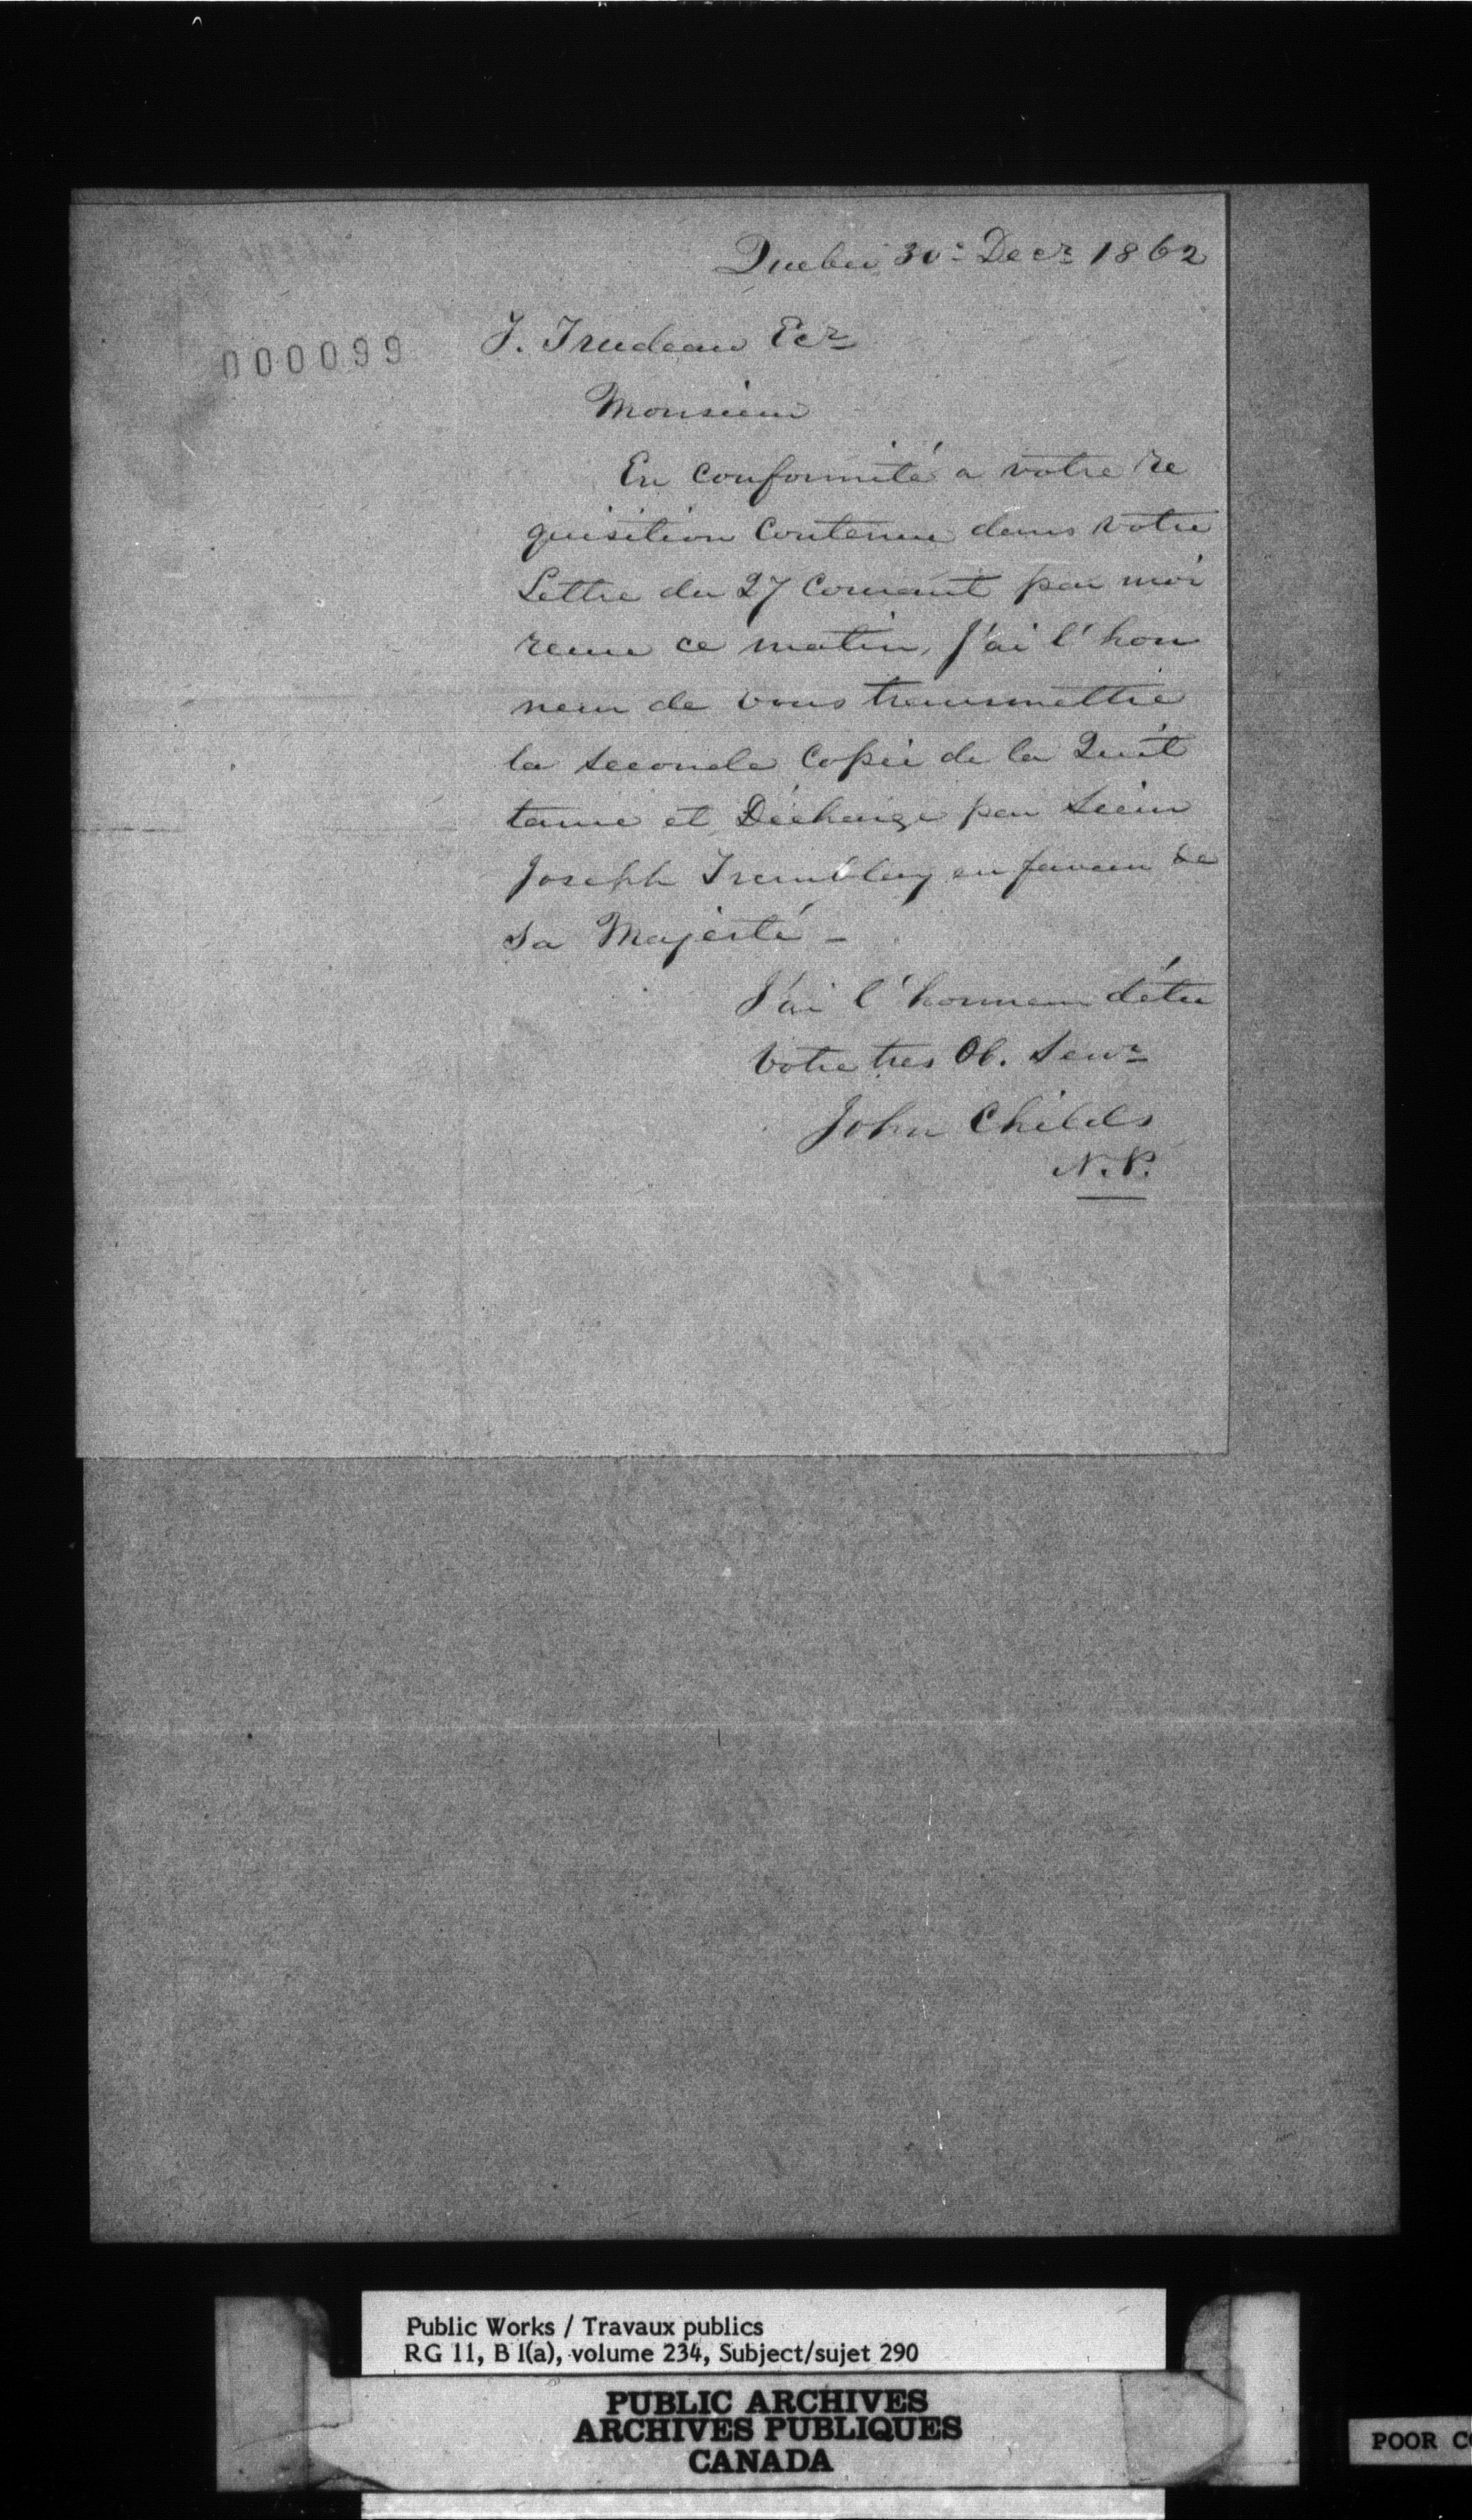 Quebec 30: Decr 1862
000099
T. Trudeau Ecr
Monsieur
En conformité a votre re
quisition contenue dans votre
Lettre du 27 Courant par moi
recue ce matin, J'ai l'hon
neur de vous transmettre
la seconde Copie de la Quit
tance et Décharge par Sieur
Joseph Tremblay en faveur de
Sa Majesté -
J'ai l'honneur d'étre
Votre tres Ob. Servr
John Childs
N.P.
Public Works / Travaux publics
RG 11, B 1(a), volume 234, Subject/sujet 290
PUBLIC ARCHIVES
ARCHIVES PUBLIQUES
CANADA
POOR CO